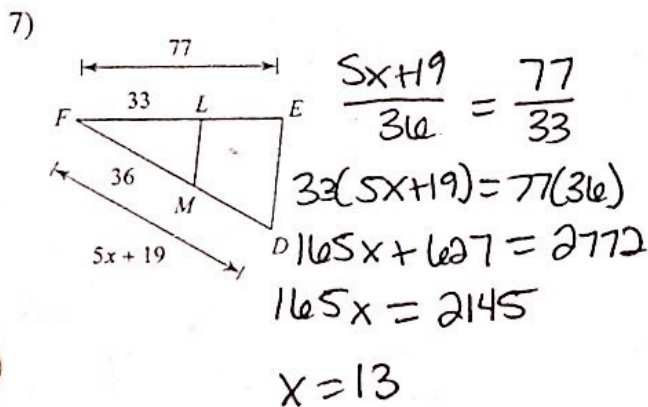 7)
77
33 L
F E
36
M
D
5x + 19
5x+19/36 = 77/33
33(5x+19)=77(36)
165x+627=2772
165x=2145
x=13